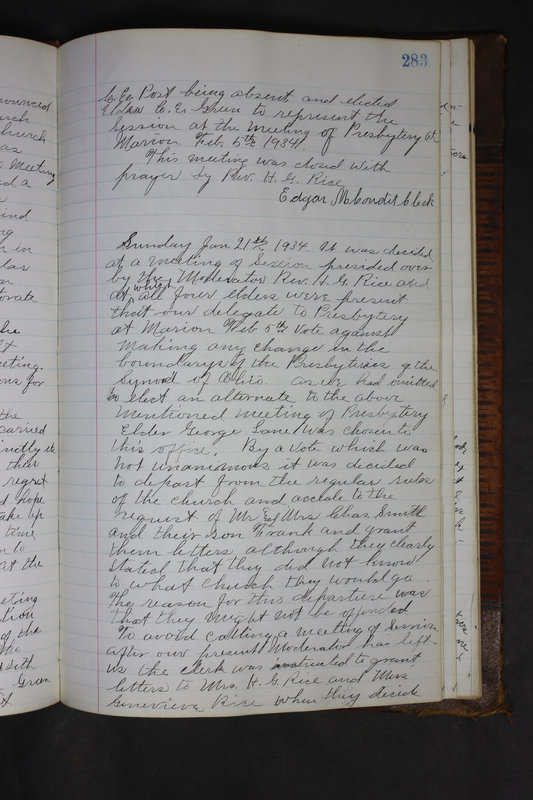 283
C. E. Post being absent and elected
Elder C. E. Green to represent the
Session at the meeting of Presbytery at
Marion Feb. 5th 1934.
This meeting was closed with
prayer by Rev. H. G. Rice
Edgar M Condit Clerk
Sunday Jan 21st 1934. It was decided
at a meeting of Session presided over
by the Moderator Rev. H. G. Rice and
at which all four elders were present
that our delegate to Presbytery
at Marion Feb 5th vote against
making any change in the
boundarys of the Presbyteries of the
Synod of Ohio. as we had omitted
to elect an alternate to the above
mentioned meeting of Presbytery
Elder George Gane was chosen to
this office. By a vote which was
not unanimous it was decided
to depart from the regular rules
of the church and accede to the
request of Mr. and Mrs Chas. Smith
and their son Frank and grant
them letters although they clearly
stated that they did not know
to what church they would go
The reason for this departure was
that they might not be offended
To avoid calling a meeting of Session
after our present Moderator has left
us the clerk was instructed to grant
letters to Mrs. H. G. Rice and Miss
Genevieve Rice when they decide